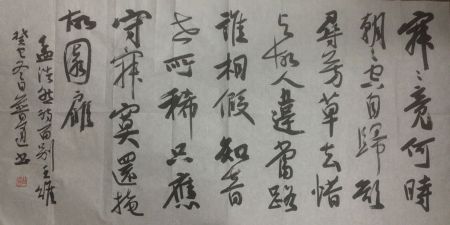 寂〻竟何待
朝〻空自歸欲
尋芳草去惜
與故人違當路
誰相假知音
世所稀只應
守寂寞還掩
故園扉
孟浩然詩留别王維
癸巳冬日普道书